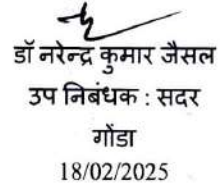 डॉ नरेन्द्र कुमार जैसल
उप निबंधक : सदर
गोंडा
18/02/2025